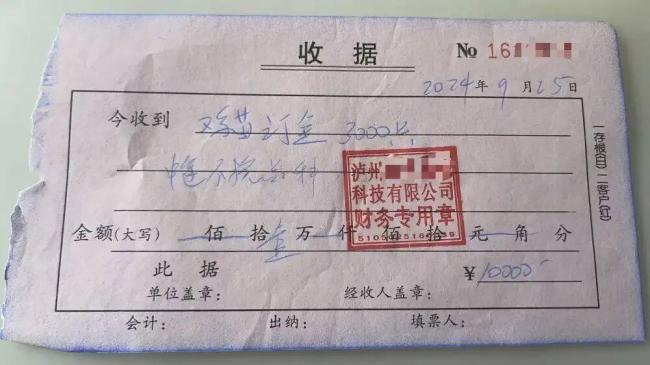 收据
No 16
2024年9月25日
今收到 鸡苗订金 3000只
泸州
科技有限公司
财务专用章
金额(大写) 佰拾壹万仟佰拾元角分
此据 ¥10000-
单位盖章: 经收人盖章:
会计: 出纳: 填票人:
一存根(白)二客户(红)